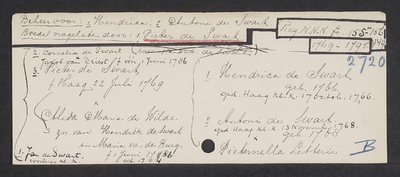 Beheer voor: 1 Hendrica, 2 Antoni de Swart.
Boedel nagelaten door: 1 Pieter de Swart
Reg. N.N.N fo 155
1769-1795
2720
2. Cornelia de Swart
Jacob van Driest
1 Juni 1786
3. Pieter de Swart
† Haag 22 Juli 1769
x
Alida Maria de Wilde
zn van Hendrik de Swart
en Maria van der Burg.
1. Jan de Swart.
1. Hendrica de Swart
geb. 1766
ged. Haag Kl. K. 1766.
2. Antoni de Swart
ged Haag Kl. K. 13 November 1768.
geb. 1768
x
Pieternella Letterie
B